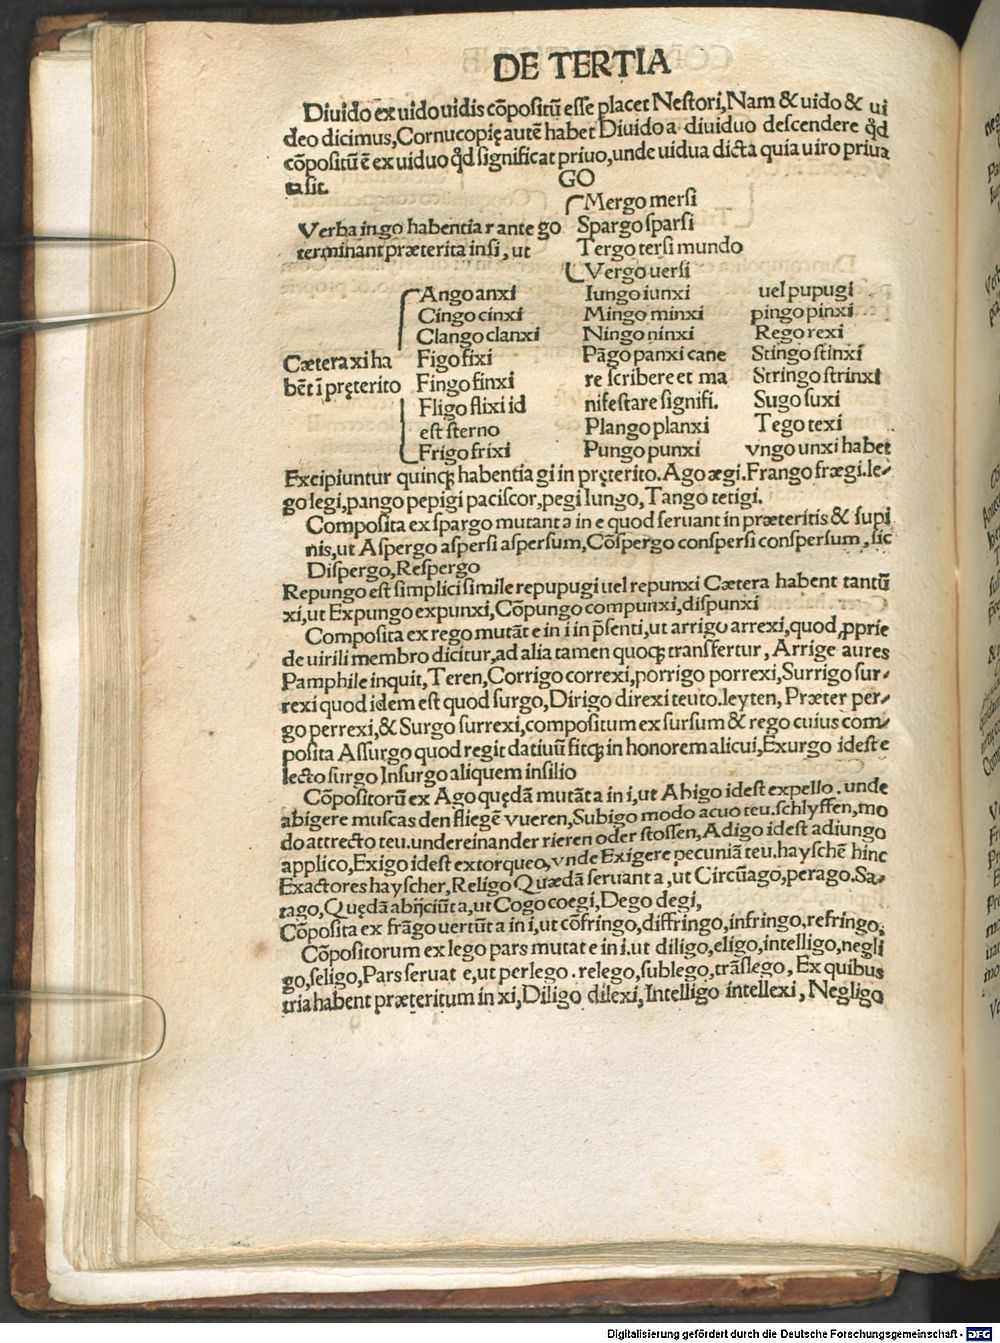 DE TERTIA
Diuido ex uido uidis cōpositū esse placet Nestori, Nam & uido & ui
deo dicimus, Cornucopię autē habet Diuido a diuiduo descendere qđ
cōpositū ē ex uiduo qđ significat priuo, unde uidua dicta quia uiro priua
ta sit.
GO
Mergo mersi
Verba in go habentia r ante go Spargo sparsi
terminant præterita in si, ut Tergo tersi mundo
Vergo uersi
Ango anxi Iungo iunxi uel pupugi
Cingo cinxi Mingo minxi pingo pinxi
Clango clanxi Ningo ninxi Rego rexi
Cætera xi ha Figo fixi Pāgo panxi cane Stingo stinxi
bēt ī pręterito Fingo finxi re scribere et ma Stringo strinxi
Fligo flixi id nifestare signifi. Sugo suxi
est sterno Plango planxi Tego texi
Frigo frixi Pungo punxi vngo unxi habet
Excipiuntur quinqꝫ habentia gi in pręterito. Ago ægi. Frango frægi. le-
go legi, pango pepigi paciscor, pegi iungo, Tango tetigi.
Composita ex spargo mutant a in e quod seruant in præteritis & supi
nis, ut Aspergo aspersi aspersum, Cōspergo conspersi conspersum, sic
Dispergo, Respergo
Repungo est simplici simile repupugi uel repunxi Cætera habent tantū
xi, ut Expungo expunxi, Cōpungo compunxi, dispunxi
Composita ex rego mutāt e in i in p̄senti, ut arrigo arrexi, quod ꝓprie
de uirili membro dicitur, ad alia tamen quoqꝫ transfertur, Arrige aures
Pamphile inquit, Teren, Corrigo correxi, porrigo porrexi, Surrigo sur-
rexi quod idem est quod surgo, Dirigo direxi teuto. leyten, Præter per-
go perrexi, & Surgo surrexi, compositum ex sursum & rego cuius com-
posita Assurgo quod regit datiuū fitqꝫ in honorem alicui, Exurgo idest e
lecto surgo Insurgo aliquem insilio
Cōpositorū ex Ago quędā mutāt a in i, ut Abigo idest expello. unde
abigere muscas den fliegē vueren, Subigo modo acuo teu. schlyffen, mo
do attrecto teu. undereinander rieren oder stossen, Adigo idest adiungo
applico, Exigo idest extorqueo, vnde Exigere pecuniā teu. hayschē hinc
Exactores hayscher, Religo Quædā seruant a, ut Circūago, perago. Sa-
tago, Quędā abijciūt a, ut Cogo coegi, Dego degi,
Cōposita ex frāgo uertūt a in i, ut cōfringo, diffringo, infringo, refringo.
Cōpositorum ex lego pars mutat e in i. ut diligo, eligo, intelligo, negli
go, seligo, Pars seruat e, ut perlego. relego, sublego, trāslego, Ex quibus
tria habent præteritum in xi, Diligo dilexi, Intelligo intellexi, Negligo
Digitalisierung gefördert durch die Deutsche Forschungsgemeinschaft - DFG